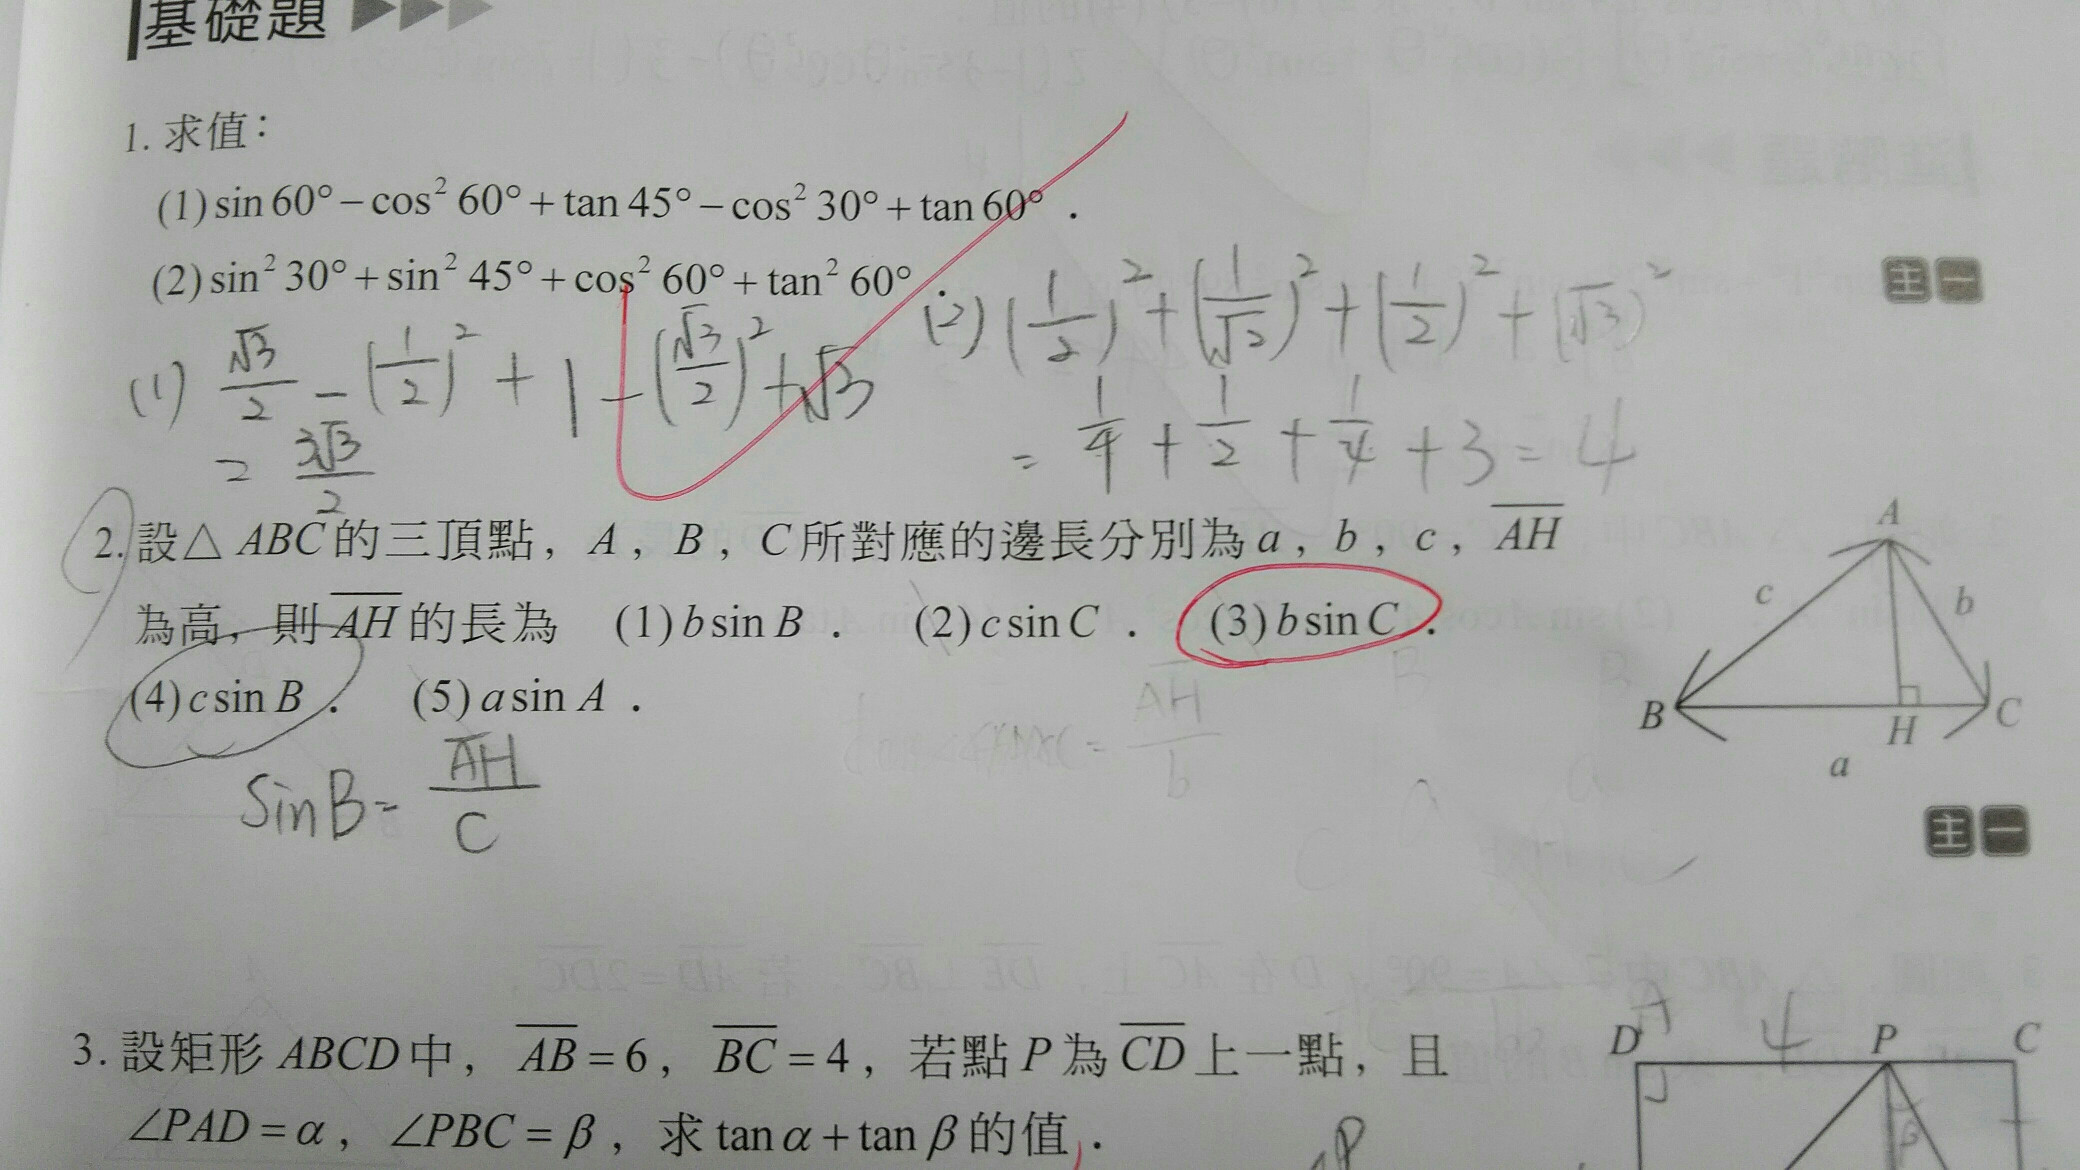 基礎題
1. 求值：
(1) sin 60° − cos² 60° + tan 45° − cos² 30° + tan 60°．
(2) sin² 30° + sin² 45° + cos² 60° + tan² 60°．
主一
(1) √3/2 − (1/2)² + 1 − (√3/2)² + √3
= 3√3/2
(2) (1/2)² + (1/√2)² + (1/2)² + (√3)²
= 1/4 + 1/2 + 1/4 + 3 = 4
2. 設△ABC的三頂點，A，B，C所對應的邊長分別為a，b，c，A̅H̅
為高，則A̅H̅的長為 (1) b sin B． (2) c sin C． (3) b sin C．
(4) c sin B． (5) a sin A．
sinB = A̅H̅/C
A
c
b
B
H
C
a
主一
A̅H̅/b
3. 設矩形ABCD中，A̅B̅=6，B̅C̅=4，若點P為C̅D̅上一點，且
∠PAD=α，∠PBC=β，求tanα+tanβ的值．
D
4
P
C
β
P